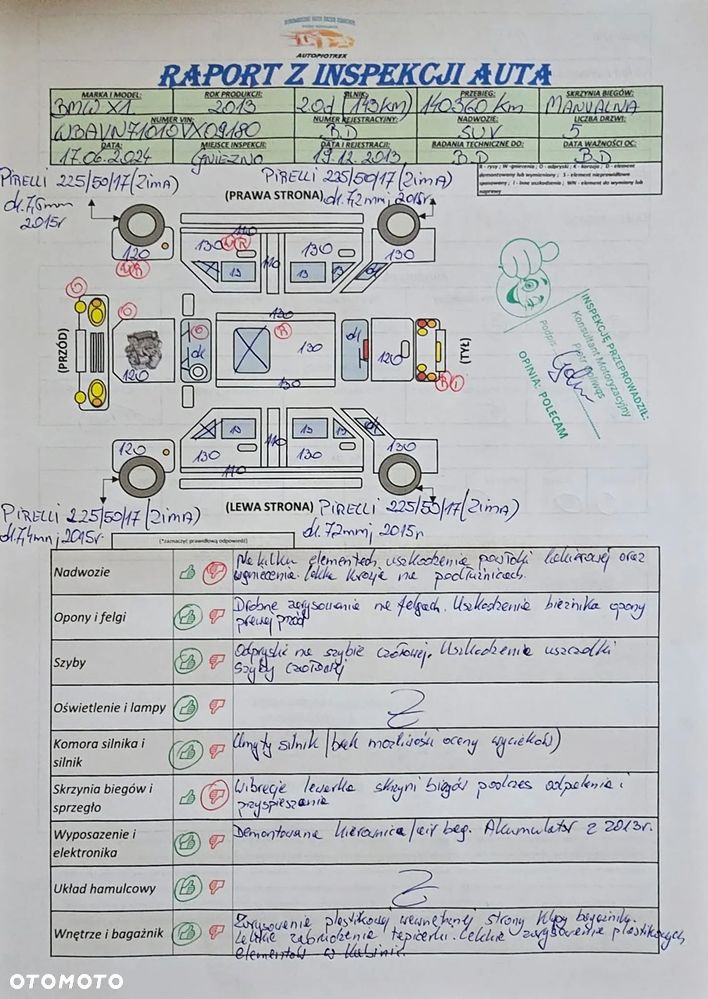 AUTOPIOTREX
RAPORT Z INSPEKCJI AUTA
MARKA I MODEL: ROK PRODUKCJI: SILNIK: PRZEBIEG: SKRZYNIA BIEGÓW:
BMW X1 2013 2.0d (143KM) 140360 km MANUALNA
NUMER VIN: NUMER REJESTRACYJNY: NADWOZIE: LICZBA DRZWI:
WBAVN71010VX09180 B.D SUV 5
DATA: MIEJSCE INSPEKCJI: DATA I REJESTRACJI: BADANIA TECHNICZNE DO: DATA WAŻNOŚCI OC:
17.06.2024 GNIEZNO 19.12.2013 B.D B.D
PIRELLI 225/50/17 (ZIMA) PIRELLI 225/50/17 (ZIMA)
2015r (PRAWA STRONA) dł. 7,2mm; 2015r
110
130 W R 130 110 130
120
W R 13 13 ok
O
O 130
(PRZÓD) O R
ok 130 ok 120 (TYŁ)
120 130
R I
INSPEKCJĘ PRZEPROWADZIŁ:
Konsultant Motoryzacyjny
Podpis
OPINIA: POLECAM
120 13 13 13 ok
130 110 130 130
110
(LEWA STRONA)
PIRELLI 225/50/17 (ZIMA) PIRELLI 225/50/17 (ZIMA)
dł. 7,4mm; 2015r. dł. 7,2mm; 2015r
(*zaznaczyć prawidłową odpowiedź)
Nadwozie Na kilku elementach uszkodzenia powłoki lakierowej oraz
wgniecenia. Lekka korozja na podłużnicach.
Opony i felgi Drobne zarysowania na felgach. Uszkodzenia bieżnika opony
prawej przód
Szyby Odpryski na szybie czołowej. Uszkodzenia uszczelki
szyby czołowej
Oświetlenie i lampy
Komora silnika i
silnik Umyty silnik (brak możliwości oceny wycieków)
Skrzynia biegów i
sprzęgło Wibracje lewarka skrzyni biegów podczas odpalania i
przyspieszania
Wyposazenie i
elektronika Demontowana kierownica/air bag. Akumulator z 2013r.
Układ hamulcowy
Wnętrze i bagażnik Zarysowania plastikowej wewnętrznej strony klapy bagażnika.
Lekkie zabrudzenia tapicerki. Lekkie zarysowania plastikowych
elementów w kabinie.
OTOMOTO